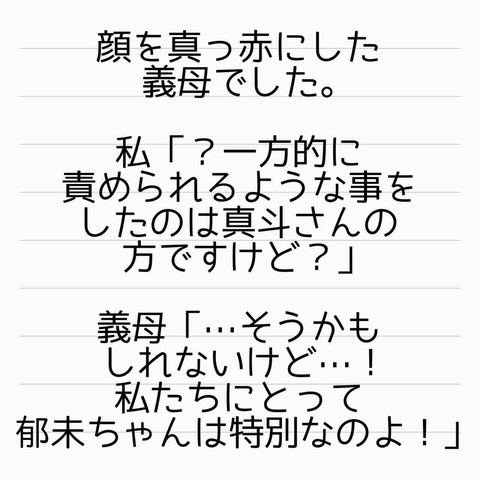 顔を真っ赤にした
義母でした。
私「？一方的に
責められるような事を
したのは真斗さんの
方ですけど？」
義母「…そうかも
しれないけど…！
私たちにとって
郁未ちゃんは特別なのよ！」